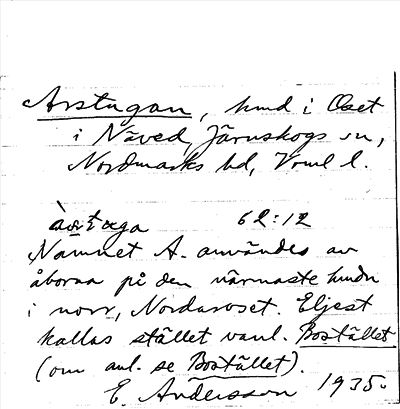 Arstugan, hmd i Oset
i Näved, Järnskogs sn,
Nordmarks hd, Vrml l.
62:12
Namnet A. användes av
åborna på den närmaste hmdn
i norr, Nordaroset. Eljest
kallas stället vanl. Bostället
(om anl. se Bostället).
E. Andersson 1935.